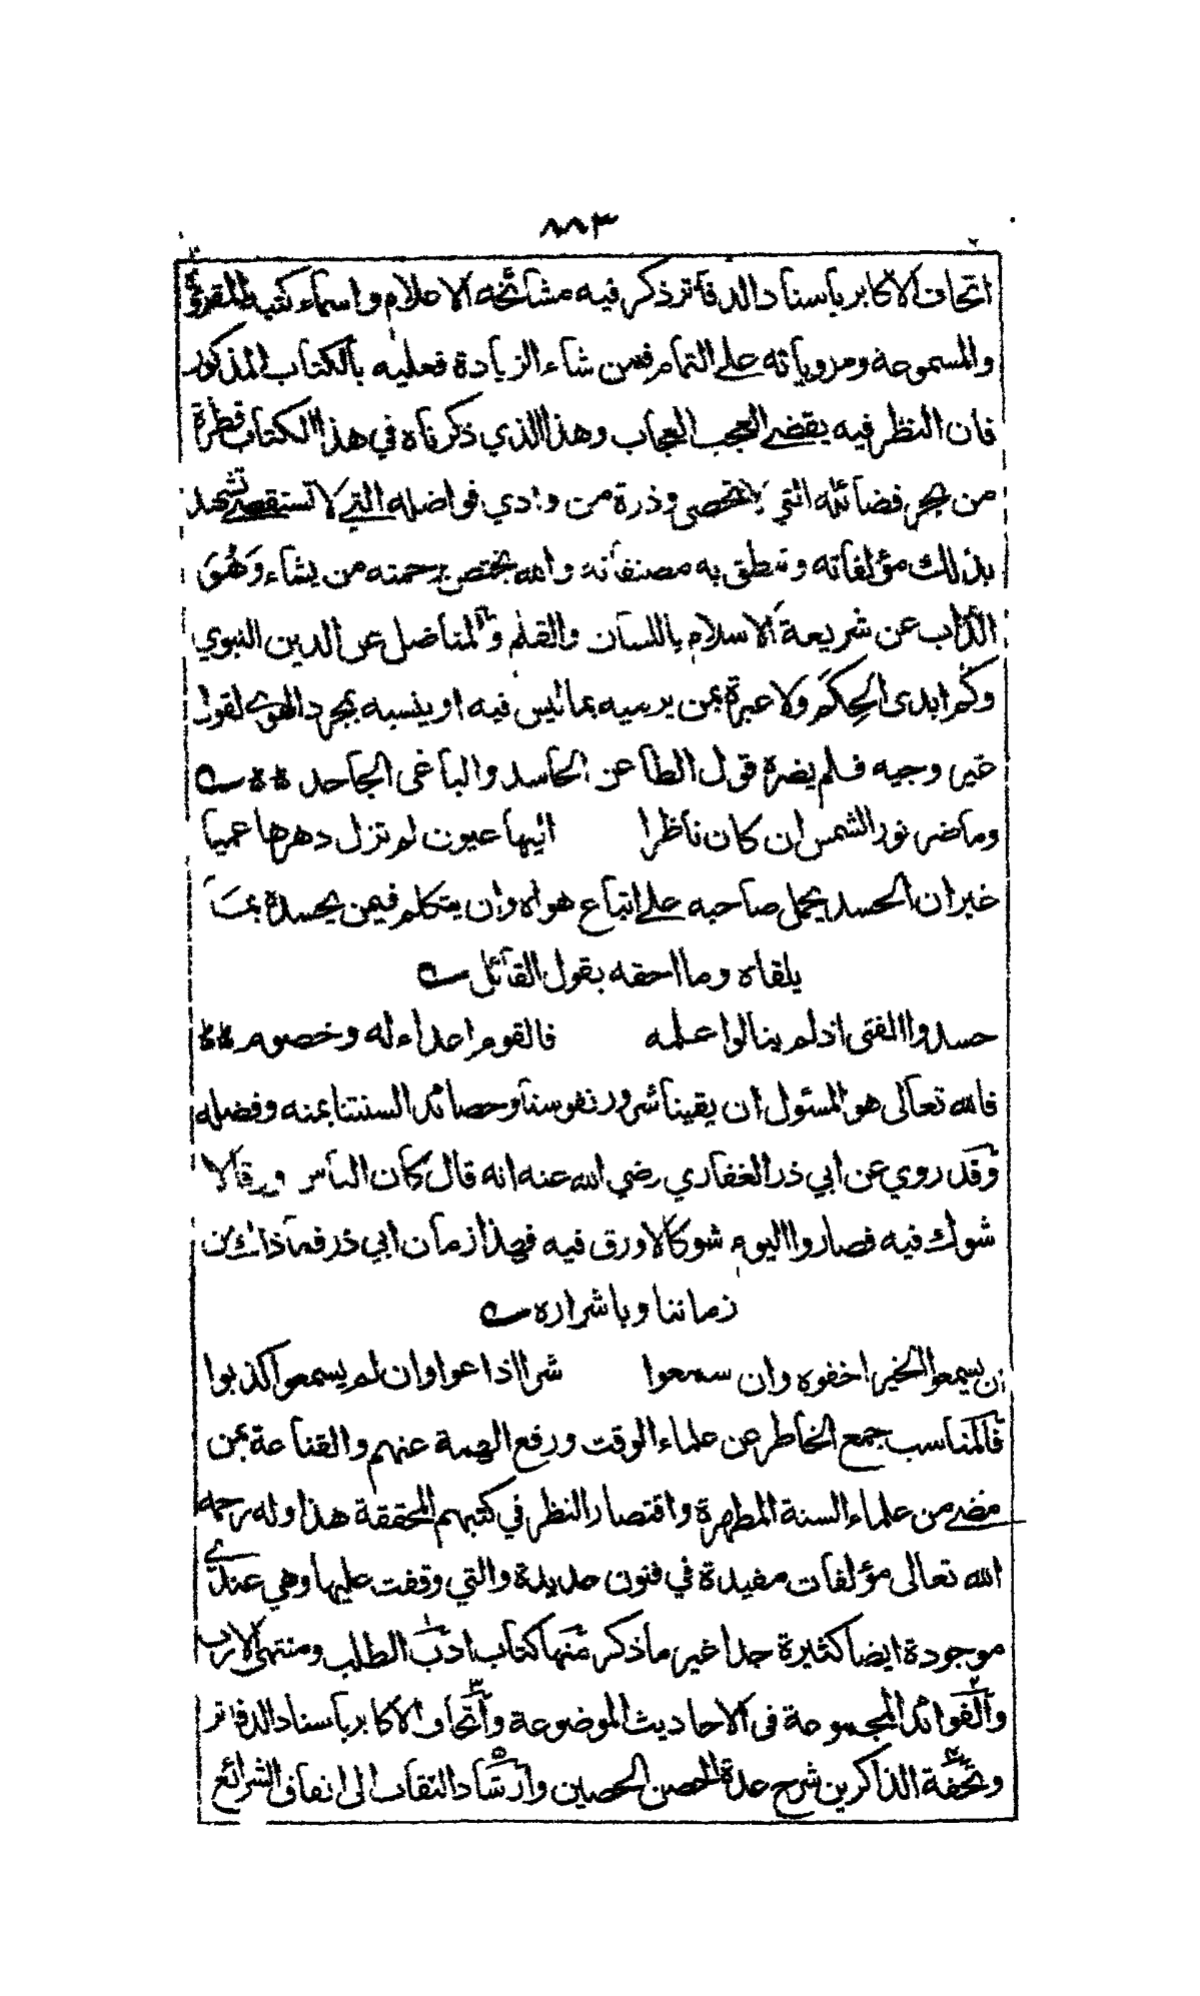 ٨٨٣
اتحاف الاكابر باسناد الدفاتر ذكر فيه مشائخه الاعلام واسماء كتبه المقروة
والمسموعة ومروياته على التمام فمن شاء الزيادة فعليه بالكتاب المذكور
فان النظر فيه يقضي العجب العجاب وهذا الذي ذكرناه في هذا الكتاب قطرة
من بحر فضائله التي لا تحصى وذرة من وادي فواضله التي لا تستقصى تشهد
بذلك مؤلفاته وتنطق به مصنفاته والله يختص برحمته من يشاء وَهُوَ
الذاب عن شريعة الاسلام باللسان والقلم والمناضل عن الدين النبوي
وكم ابدى الحِكَم ولا عبرة بمن يرميه بما ليس فيه او ينسبه بمجرد الهوى لقول
غير وجيه فلم يضره قول الطاعن الحاسد والباغى الجاحد ** ؎
وما ضر نور الشمس ان كان ناظرا اليها عيون لم تزل دهرها عميا
غير ان الحسد يحمل صاحبه على اتباع هواه وان يتكلم فيمن يحسده بما
يلقاه وما احقه بقول القائل ؎
حسدوا الفتى اذ لم ينالوا علمه فالقوم اعداء له وخصوم **
فالله تعالى هو المسئول ان يقينا شرور نفوسنا وحصائد السنتنا بمنه وفضله
وَقد روي عن ابي ذر الغفاري رضي الله عنه انه قال كان الناس ورقا لا
شوك فيه فصاروا اليوم شوكا لا ورق فيه فهذا زمان ابي ذر فما ذاك من
زماننا وباشراره ؎
ان يسمعوا الخير اخفوه وان سمعوا شرا اذاعوا وان لم يسمعوا كذبوا
فالمناسب جمع الخاطر عن علماء الوقت ورفع الهمة عنهم والقناعة بمن
مضى من علماء السنة المطهرة واقتصار النظر في كتبهم المحققة هذا وله رحمه
الله تعالى مؤلفات مفيدة في فنون عديدة والتي وقفت عليها وهي عندي
موجودة ايضا كثيرة جدا غير ما ذكر منها كتاب ادب الطلب ومنتهى الارب
والفوائد المجموعة فى الاحاديث الموضوعة واتحاف الاكابر باسناد الدفاتر
وتحفة الذاكرين شرح عدة الحصن الحصين وارشاد الثقات الى اتفاق الشرائع